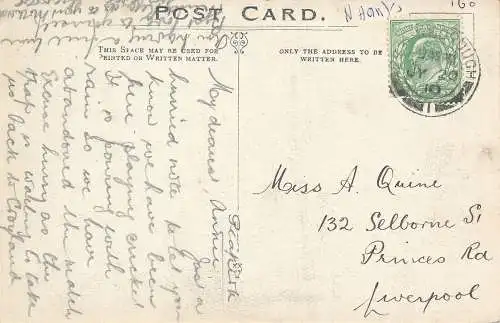 POST CARD.
N Hants
160
THIS SPACE MAY BE USED FOR
PRINTED OR WRITTEN MATTER.
ONLY THE ADDRESS TO BE
WRITTEN HERE.
JY 20
10
My dearest Annie
Just a
hurried note to let you
know we have been
here playing cricket
It is pouring with
rain so we have
abandoned the match
Excuse hurry as the
trap is waiting to take
us back to
Miss A. Quine
132 Selborne St
Princes Rd
Liverpool